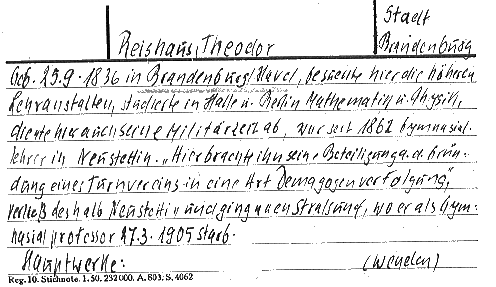 Stadt
Reishaus, Theodor
Brandenburg
Geb. 25.9.1836 in Brandenburg/Havel, besuchte hier die höheren
Lehranstalten, studierte in Halle u. Berlin Mathematik u. Physik,
diente hier auch seine Militärzeit ab, war seit 1862 Gymnasial-
lehrer in Neustettin. „Hier brachte ihn seine Beteiligung a. d. Grün-
dung eines Turnvereins in eine Art Demagogenverfolgung",
verließ deshalb Neustettin und ging nach Stralsund, wo er als Gym-
nasialprofessor 27.3.1905 starb.
Hauptwerke:
Reg. 10. Stichnote. 1. 50. 232 000. A. 803. S. 4062